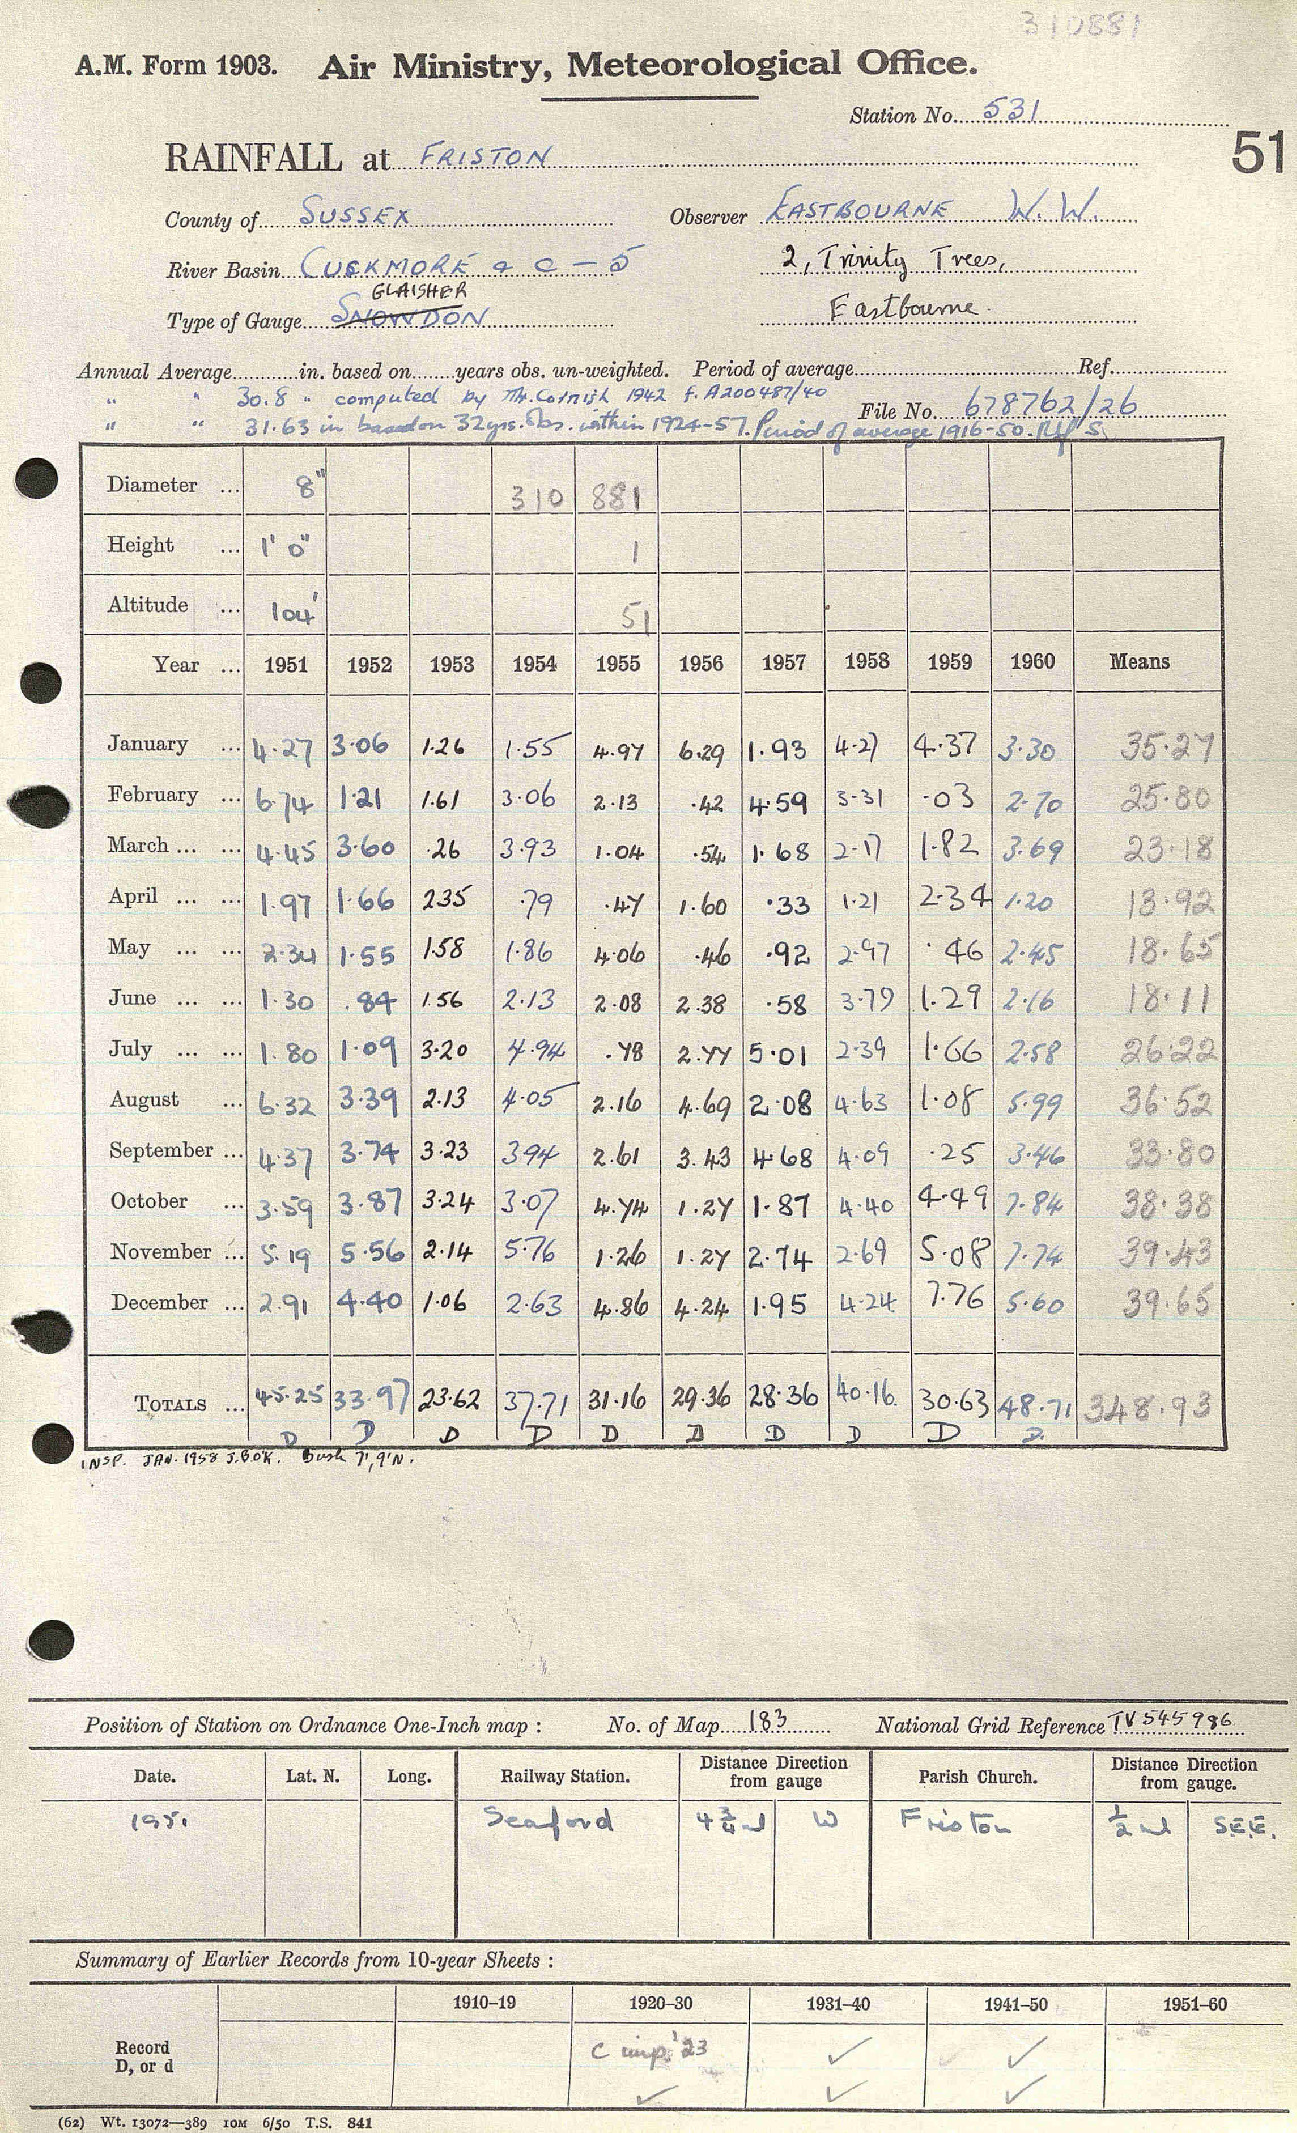 310881
A.M. Form 1903. Air Ministry, Meteorological Office.
Station No. 531
51
RAINFALL at FRISTON
County of SUSSEX Observer EASTBOURNE W.W.
River Basin CUCKMORE & C - 5 2, Trinity Trees,
GLAISHER
Type of Gauge SNOWDON Eastbourne.
Annual Average in. based on years obs. un-weighted. Period of average Ref.
" " 30.8 " computed by Mr. Cornish 1942 f. A200487/40 File No. 678762/26
" " 31.63 in based on 32 yrs. Obs. within 1924-57. Period of average 1916-50. Ref S.
Diameter ... 8" 310 881
Height ... 1' 0" 1
Altitude ... 104' 51
Year ... 1951 1952 1953 1954 1955 1956 1957 1958 1959 1960 Means
January ... 4.27 3.06 1.26 1.55 4.97 6.29 1.93 4.27 4.37 3.30 35.27
February ... 6.74 1.21 1.61 3.06 2.13 .42 4.59 3.31 .03 2.70 25.80
March ... ... 4.45 3.60 .26 3.93 1.04 .54 1.68 2.17 1.82 3.69 23.18
April ... ... 1.97 1.66 2.35 .79 .47 1.60 .33 1.21 2.34 1.20 13.92
May ... ... 2.34 1.55 1.58 1.86 4.06 .46 .92 2.97 .46 2.45 18.65
June ... ... 1.30 .84 1.56 2.13 2.08 2.38 .58 3.79 1.29 2.16 18.11
July ... ... 1.80 1.09 3.20 4.94 .78 2.77 5.01 2.39 1.66 2.58 26.22
August ... 6.32 3.39 2.13 4.05 2.16 4.69 2.08 4.63 1.08 5.99 36.52
September ... 4.37 3.74 3.23 3.94 2.61 3.43 4.68 4.09 .25 3.46 33.80
October ... 3.59 3.87 3.24 3.07 4.74 1.27 1.87 4.40 4.49 7.84 38.38
November ... 5.19 5.56 2.14 5.76 1.26 1.27 2.74 2.69 5.08 7.74 39.43
December ... 2.91 4.40 1.06 2.63 4.86 4.24 1.95 4.24 7.76 5.60 39.65
TOTALS ... 45.25 33.97 23.62 37.71 31.16 29.36 28.36 40.16 30.63 48.71 348.93
D D D D D D D D D D
INSP. JAN. 1958 J.B.O'K. Bush 7', 9'N.
Position of Station on Ordnance One-Inch map : No. of Map 183 National Grid Reference TV 545986
Date. Lat. N. Long. Railway Station. Distance Direction from gauge Parish Church. Distance Direction from gauge.
1951 Seaford 4 3/4 ml W Friston 1/2 ml S.E.E.
Summary of Earlier Records from 10-year Sheets :
1910–19 1920–30 1931–40 1941–50 1951–60
Record
D, or d
C imp. '23 ✓ ✓
✓ ✓ ✓
(62) Wt. 13072—389 10M 6/50 T.S. 841